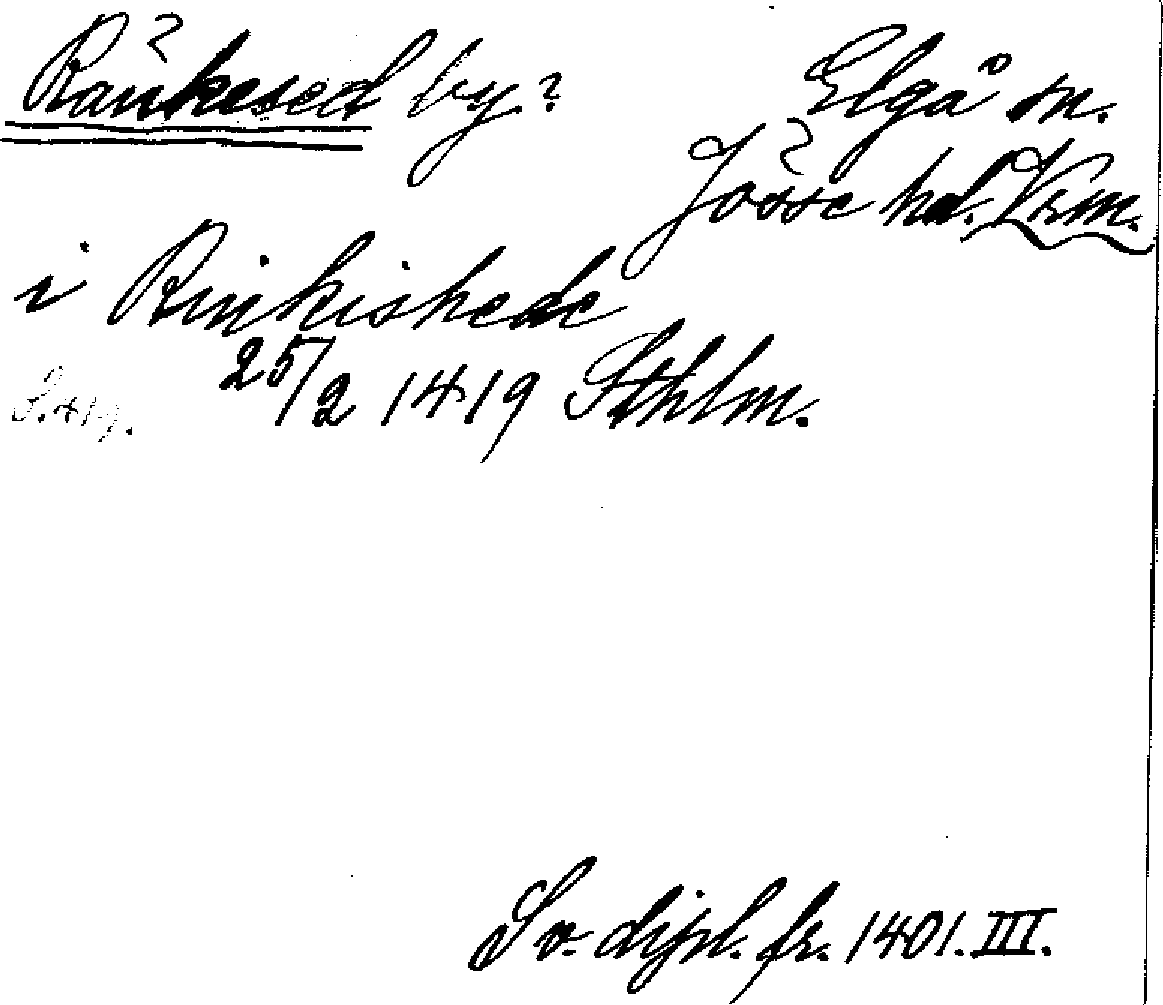 Ränkesed by? Elgå sn.
Jösse hd. Vrm.
i Rinkishede
25/2 1419 Sthlm.
S. 419.
Sv. dipl. fr. 1401. III.